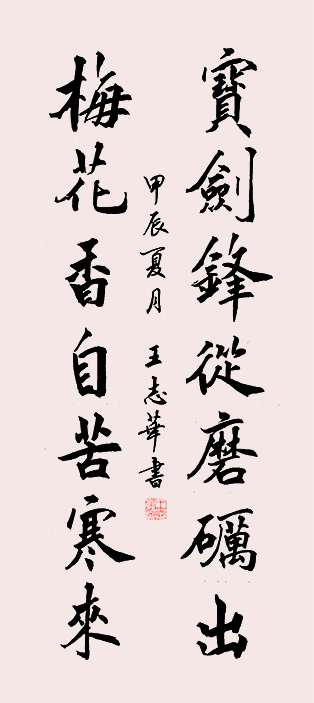 寶劍鋒從磨礪出
梅花香自苦寒來
甲辰夏月 王志華書